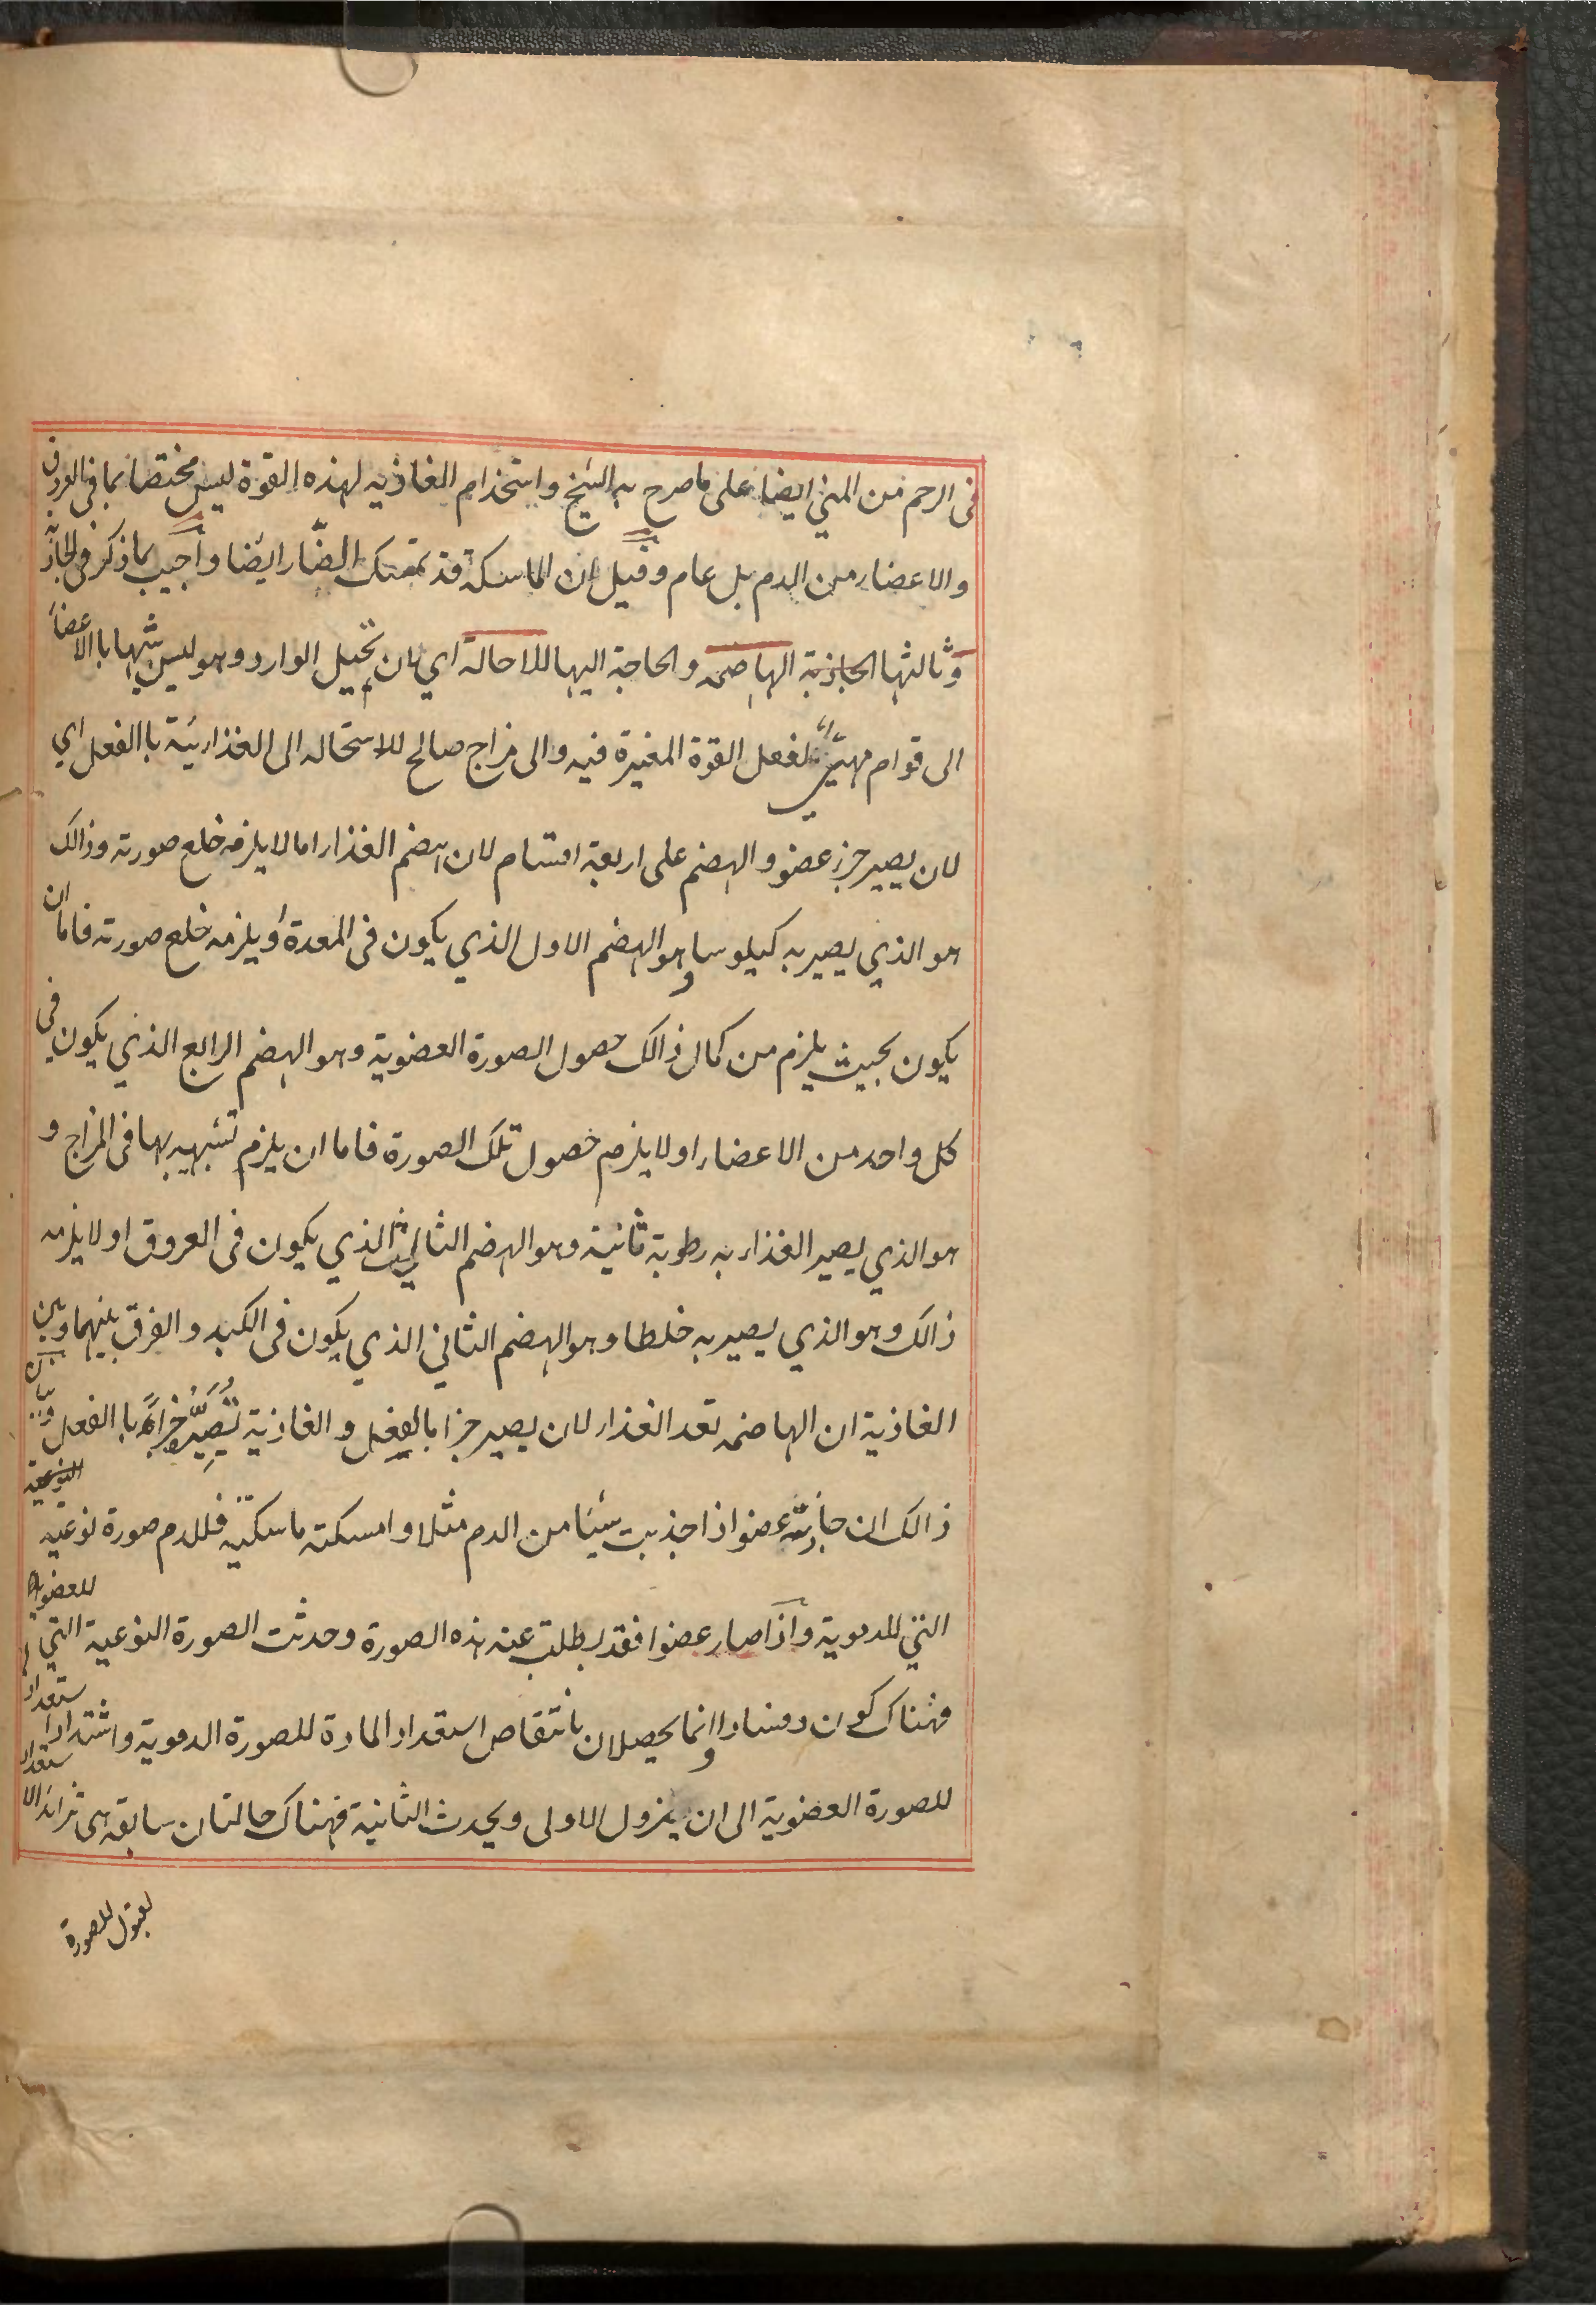 فى الرحم من المني ايضا على ما صرح به الشيخ واستخدام الغاذيه لهذه القوة ليس مختصا بما فى العروق
والاعضاء من الدم بل عام وقيل ان الماسكة قد تمسك الضار ايضا واجيب بما ذكر فى الجاذبه
وثالثها الجاذبة الهاضمه والحاجة اليها للاحالة اي لان تحيل الوارد وهو ليس شبيها باالاعضاء
الى قوام مهيئ لفعل القوة المغيرة فيه والى مزاج صالح للاستحاله الى الغذائية باالفعل اي
لان يصير جزء عضو والهضم على اربعة اقسام لان هضم الغذاء اما لا يلزمه خلع صورته وذالك
هو الذي يصير به كيلوسا وهو الهضم الاول الذي يكون فى المعدة او يلزمه خلع صورته فاما ان
يكون بحيث يلزم من كمال ذالك حصول الصورة العضوية وهو الهضم الرابع الذي يكون فى
كل واحد من الاعضاء او لا يلزم حصول تلك الصورة فاما ان يلزم تشبهه بها فى المزاج و
هو الذي يصير الغذاء به رطوبة ثانية وهو الهضم الثالث الذي يكون فى العروق او لا يلزمه
ذالك وهو الذي يصير به خلطا وهو الهضم الثاني الذي يكون فى الكبد والفرق بينهما وبين
الغاذية ان الهاضمه تعد الغذاء لان يصير جزا بالفعل والغاذية تُصَيِّرُه جزاءً باالفعل وبيان
ذالك ان جاذبة عضو اذا جذبت شيئا من الدم مثلا وامسكته ماسكته فللدم صورة نوعيه
التي للدموية واذا صار عضوا فقد بطلت عنه هذه الصورة وحدثت الصورة النوعية التي للعضوية
فهناك كون وفساد وانما يحصلان بانتقاص استعداد المادة للصورة الدموية واشتداد استعداد
للصورة العضوية الى ان يزول الاولى ويحدث الثانية فهناك حالتان سابقه هى تزائد الاستعداد
لقبول للصورة